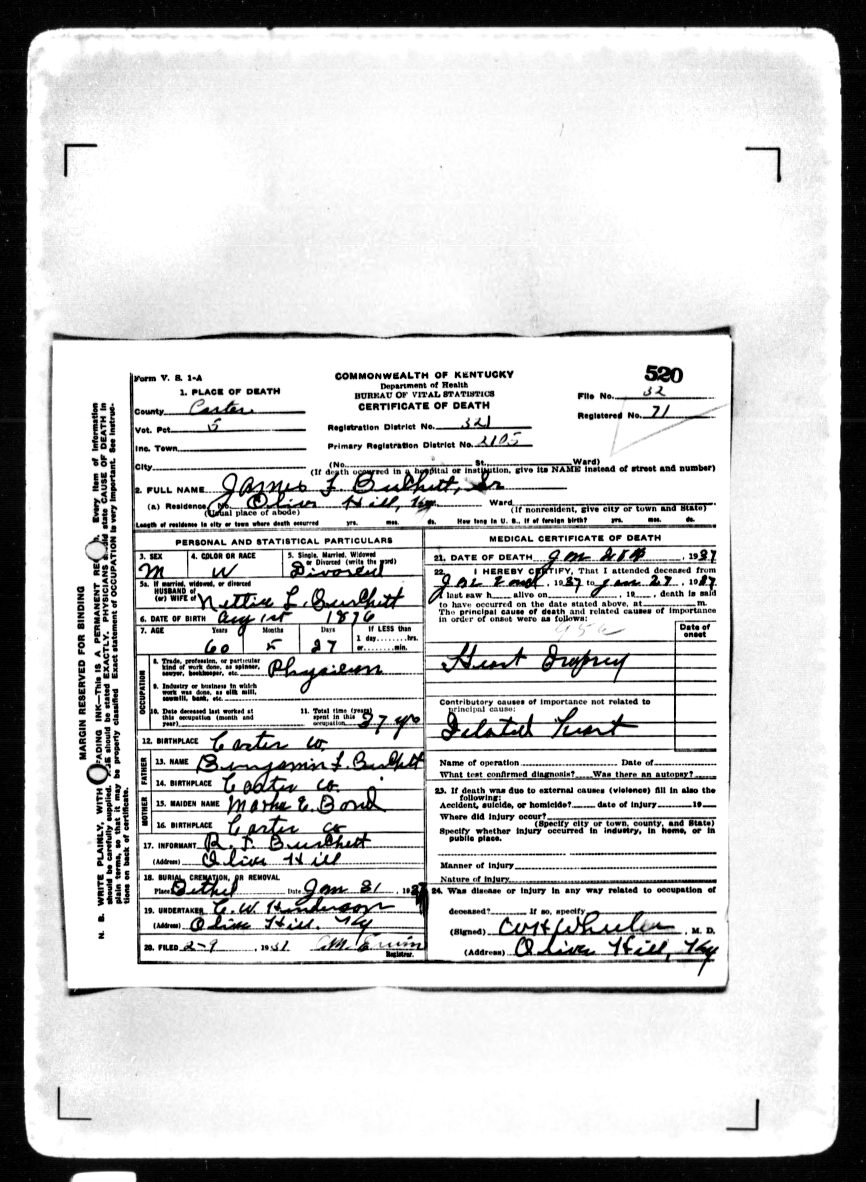 Form V. S. 1-A
COMMONWEALTH OF KENTUCKY
Department of Health
BUREAU OF VITAL STATISTICS
CERTIFICATE OF DEATH
520
File No. 32
Registered No. 71
1. PLACE OF DEATH
County Carter
Vot. Pct. 5
Registration District No. 321
Inc. Town
Primary Registration District No. 2105
City (No. St. Ward)
(If death occurred in a hospital or institution, give its NAME instead of street and number)
2. FULL NAME James F. Burchett, Sr
(a) Residence, No. Olive Hill, Ky Ward
(Usual place of abode) (If nonresident, give city or town and State)
Length of residence in city or town where death occurred yrs. mos. ds. How long in U. S., if of foreign birth? yrs. mos. ds.
PERSONAL AND STATISTICAL PARTICULARS
3. SEX 4. COLOR OR RACE 5. Single, Married, Widowed or Divorced (write the word)
M W Divorced
5a. If married, widowed, or divorced
HUSBAND of
(or) WIFE of Nettie L. Burchett
6. DATE OF BIRTH Aug 1st 1876
7. AGE Years Months Days If LESS than
1 day hrs.
or min.
60 5 27
OCCUPATION
8. Trade, profession, or particular kind of work done, as spinner, sawyer, bookkeeper, etc. Physician
9. Industry or business in which work was done, as silk mill, sawmill, bank, etc.
10. Date deceased last worked at this occupation (month and year)
11. Total time (years) spent in this occupation 37 yrs
12. BIRTHPLACE Carter Co
FATHER
13. NAME Benjamin F. Burchett
14. BIRTHPLACE Carter Co.
MOTHER
15. MAIDEN NAME E. Bond
16. BIRTHPLACE Carter Co
17. INFORMANT Burchett
(Address) Olive Hill
18. BURIAL, CREMATION, OR REMOVAL
Place Bethel Date Jan 31, 1937
19. UNDERTAKER C. W. Henderson
(Address) Olive Hill, Ky
20. FILED 2-9, 1937
Registrar.
MEDICAL CERTIFICATE OF DEATH
21. DATE OF DEATH Jan, 1937
22. I HEREBY CERTIFY, That I attended deceased from
1937 to Jan 27, 1937
I last saw h alive on , 19 , death is said
to have occurred on the date stated above, at m.
The principal cause of death and related causes of importance
in order of onset were as follows:
Date of onset
Heart Dropsy
Contributory causes of importance not related to
principal cause:
Dilated Heart
Name of operation Date of
What test confirmed diagnosis? Was there an autopsy?
23. If death was due to external causes (violence) fill in also the
following:
Accident, suicide, or homicide? date of injury 19
Where did injury occur?
(Specify city or town, county, and State)
Specify whether injury occurred in industry, in home, or in
public place.
Manner of injury
Nature of injury
24. Was disease or injury in any way related to occupation of
deceased? If so, specify
(Signed) Wheeler, M. D.
(Address) Olive Hill, Ky
MARGIN RESERVED FOR BINDING
N. B. WRITE PLAINLY, WITH FADING INK—This is A PERMANENT Every item of information
should be carefully supplied. should be stated EXACTLY. PHYSICIANS state CAUSE OF DEATH in
plain terms, so that it may be properly classified. Exact statement of OCCUPATION is very important. See instruc-
tions on back of certificate.